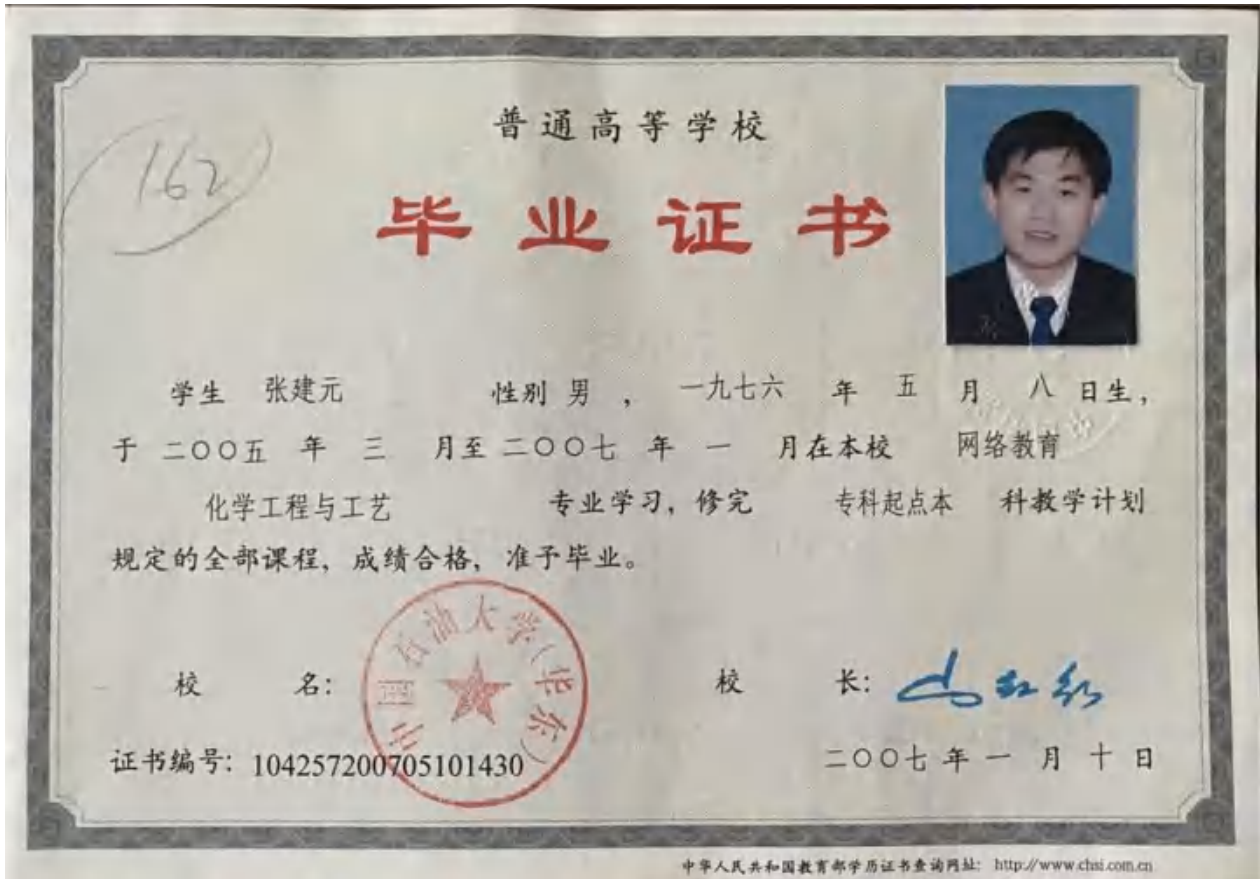 162
普通高等学校
毕业证书
学生 张建元 性别 男 , 一九七六 年 五 月 八 日生,
于 二〇〇五 年 三 月至 二〇〇七 年 一 月在本校 网络教育
化学工程与工艺 专业学习, 修完 专科起点本 科教学计划
规定的全部课程, 成绩合格, 准予毕业。
中国石油大学(华东)
校 名: 校 长:
证书编号: 104257200705101430 二〇〇七 年 一 月 十 日
中华人民共和国教育部学历证书查询网址: http://www.chsi.com.cn